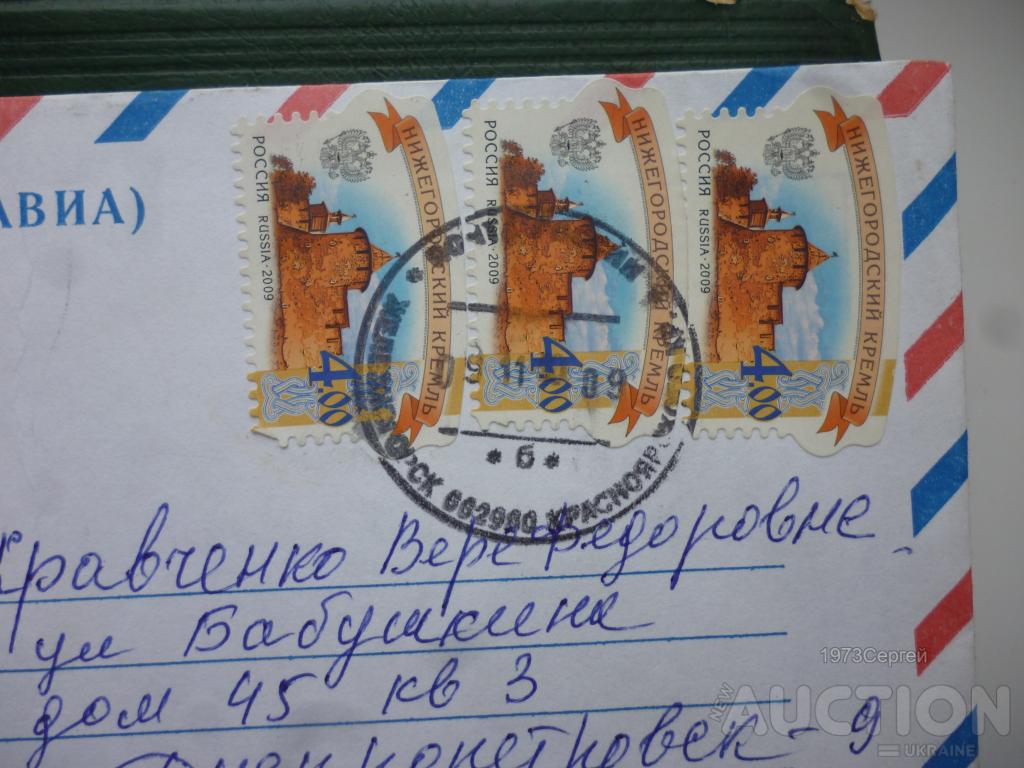 АВИА)
РОССИЯ RUSSIA·2009
НИЖЕГОРОДСКИЙ КРЕМЛЬ
4.00
РОССИЯ RUSSIA·2009
НИЖЕГОРОДСКИЙ КРЕМЛЬ
4.00
РОССИЯ RUSSIA·2009
НИЖЕГОРОДСКИЙ КРЕМЛЬ
4.00
11 09
* б *
Кравченко Вере Федоровне
ул Бабушкина
дом 45 кв 3
Днепропетровск - 9
1973Сергей
NEW AUCTION
UKRAINE